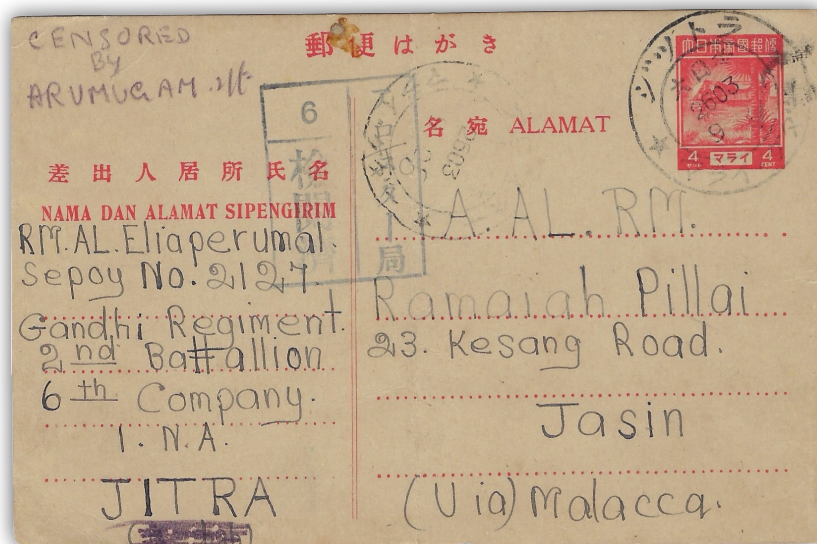 CENSORED
By
ARUMUGAM
郵便はがき
大日本帝國郵便
4 マライ 4
CENT
ジットラ
2603
6
検閲済
局
2603
名宛 ALAMAT
差出人居所氏名
NAMA DAN ALAMAT SIPENGIRIM
RM. AL. Eliaperumal.
Sepoy No. 2127.
Gandhi Regiment.
2nd Battallion
6th Company.
I. N. A.
JITRA
A. AL. RM.
Ramaiah Pillai
23. Kesang Road.
Jasin
(Via) Malacca.